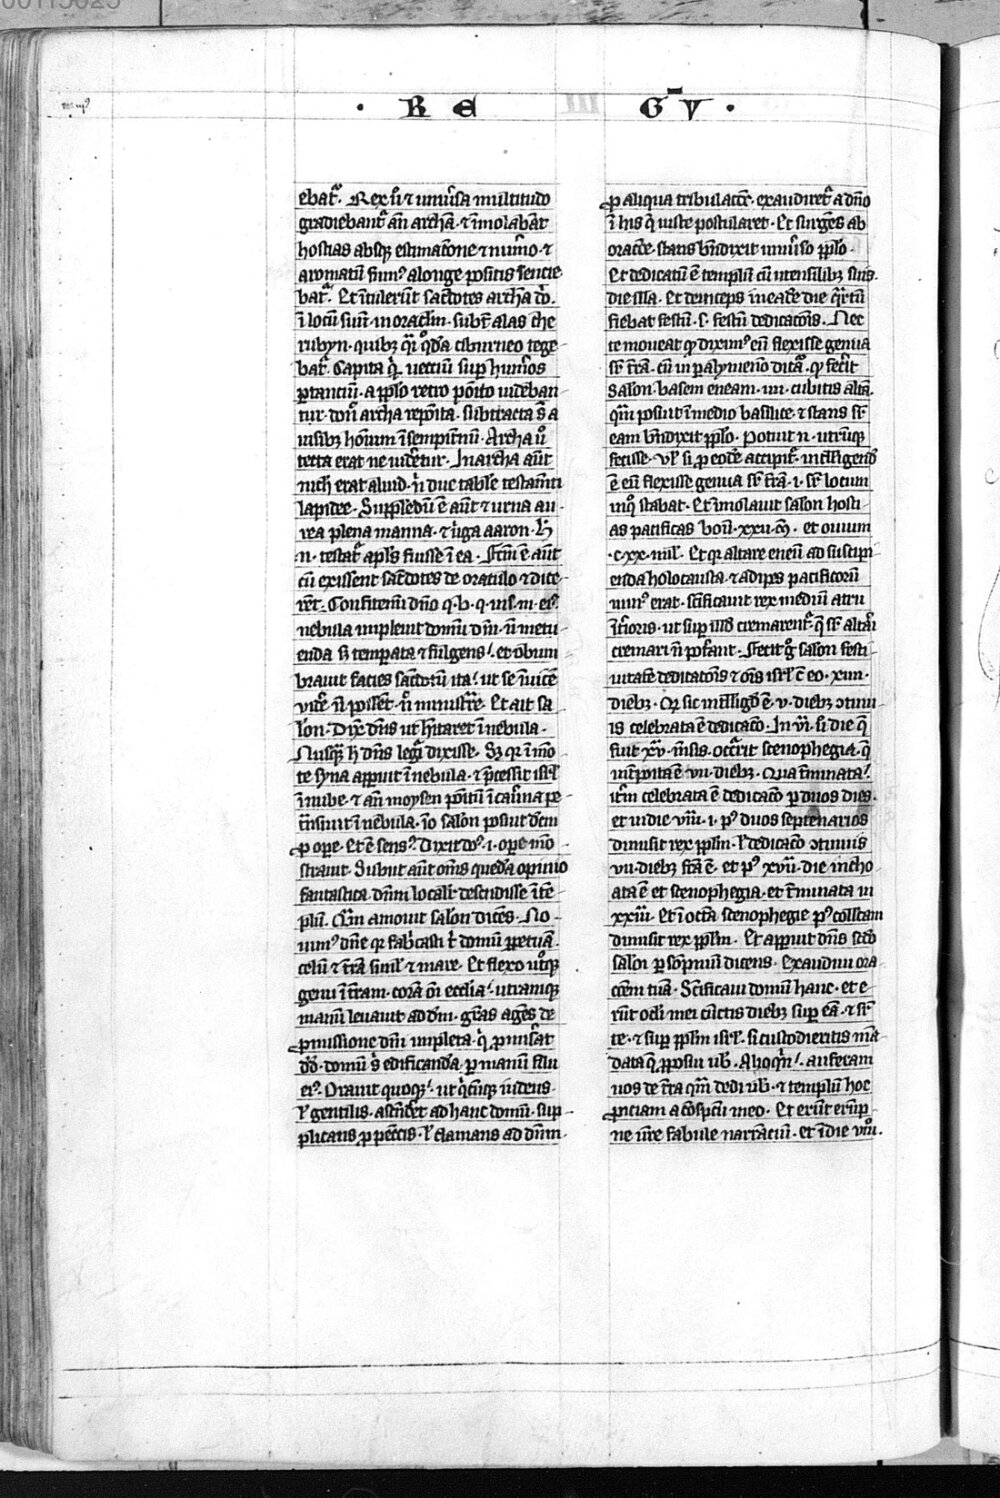 · R E G̅ V ·
ebat᷑. Rex u̅ ⁊ uniu̅sa multitudo
gradiebant᷑ an̅ archa̅. ⁊ i̅molaba̅t
hostias absq; estimat̅one ⁊ nu̅o. ⁊
aromatu̅ fum⁹ alonge positis sentie-
bat᷑. Et i̅tuleru̅t sac̅dotes archa̅ d̅o̅.
i̅ locu̅ suu̅. in orac̅lm. subt̅ alas che
rubyn. quib; q̅i q̊da̅ ciburneo tege-
bat᷑. Capita q̅ uectiu̅ sup̅ hum̅os
p̅tanciu̅. a pp̅lo retro po̅ito uideban-
tur. don̅ archa repo̅ita. subtracta s̅ a
uisib; ho̅ium i̅ sempit̅nu̅. Archa u̅o
tecta erat ne uid̅etur. In archa aut̅
nich̅ erat aliud. n̅ due tabule testam̅ti
lapidee. Supple̅du̅ e̅ aut̅ ⁊ urna au-
rea plena manna. ⁊ u̅ga aaron. h̅
.n. testat᷑ apl̅s fuisse i̅ ea. Fc̅m e̅ aut̅
cu̅ exissent sac̅dotes de oraculo ⁊ dice-
re̅t. Confitemi̅ dn̅o q. b. q. in s. m. ei⁹.
nebula impleuit domu̅ dn̅i. n̅ metu-
enda s̅ temperata ⁊ fulgens. et obum-
brauit facies sac̅dotu̅ ita. ut se i̅uice̅
uide̅. n̅ posse̅t. n̅ ministr̅re. Et ait sa-
lon̅. Dix̅ dn̅s ut h̅itaret i̅ nebula.
Nusq̅ h̅ dn̅s legit᷑ dixisse. S; q̅r i̅ mo̅-
te syna apparuit i̅ nebula. ⁊ p̅cessit isrl̅
i̅ nube. ⁊ an̅ moysen po̅itu̅ i̅ cau̅na pe-
t̅nsiuit i̅ nebula. io̅ salon̅ posuit dc̅m
p̱ ope̅. Et e̅ sens⁹. dixit do⁹. i. ope̅ mo̅-
strauit. Subuit aut̅ om̅s queda̅ opinio
fantastica dn̅m localr̅ descendisse i̅ te̅-
plu̅. Qu̅m amouit salon̅ dice̅s. No-
uim⁹ dn̅e q̅r fab̅casti t̅ domu̅ p̅petua̅.
celu̅ ⁊ t̅ra̅ simul̅ ⁊ mare. Et flexo ut̊q;
genu i̅ t̅ram. cora̅ o̅i eccl̅ia. utramq;
manu̅ leuauit ad dn̅m. gr̅as age̅s de
p̱missione dn̅i impleta. q̅ p̱mis̅at
d̅d̅. domu̅ s̅ edificanda̅. p̱ manu̅ filii
ei⁹. Orauit quoq;. ut q̅cu̅q; iudeus.
l̅ gentilis. asce̅de̅t ad hanc domu̅. sup-
plicans p̱ pecc̅is. l̅ clamans ad dn̅m.
p̱ aliqua tribulac̅oe̅. exaudiret᷑ a dn̅o
i̅ his q̅ iuste postularet. Et surge̅s ab
orac̅oe̅. stans bn̅dixit uniu̅so pp̅lo.
Et dedicatu̅ e̅ templu̅ cu̅ utensilib; suis.
die illa. Et deinceps in eade̅ die q̅rtu̅
fiebat festu̅. s. festu̅ dedicac̅o̅is. Nec
te moueat q̲ dixim⁹ eu̅ flexisse genua
sr̅ t̅ra̅. cu̅ in palymeno̅ dica᷑. q̲ fec̅it
Salon̅. basem eneam. iii. cubitis alta̅.
qu̅m posuit i̅ medio basilice. ⁊ stans sr̅
eam bn̅dixit pp̅lo. Potuit n̅. utru̅q;
fecisse. Ul̅ si p̱ eode̅ accipit᷑. intelligend̅
e̅ eu̅ flexisse genua sr̅ t̅ra̅. i. sr̅ locum
in q̊ stabat. Et i̅molauit salon̅ hosti-
as pacificas bou̅. xxii. m̅. et ouium
.c. xx. mil̅. Et q̅r altare eneu̅ ad suscipi-
enda holocausta. ⁊ adipes pacificoru̅
min⁹ erat. sc̅ificauit rex mediu̅ atrii
i̅t̅ioris. ut sup̅ illd̅ cremarent᷑. q̅ sr̅ altar̅i
cremari n̅ pot̅ant. Fecit g̊ salon̅ festi-
uitate̅ dedicac̅o̅is ⁊ o̅is isrl̅ c̅ eo. xiiii.
dieb;. Q̅r sic intellige̅d̅ e̅. v. dieb; ↄtinu-
is celebrata e̅ dedicac̅o. In vi̅. si̅ die q̅
fuit xv̅. m̅sis. occ̅rit scenophegia. q̅
int̅po̅ita e̅ vii. dieb;. Qua t̅minata.
it̅m celebrata e̅ dedicac̅o p̱ duos dies.
et in die viii. i. p⁹ duos septenarios
dimisit rex pp̅lm. l̅ dedicac̅o ↄtinuis
vii. dieb; fc̅a e̅. et p⁹ xvii̅. die incho-
ata e̅ et scenophegia. et t̅minata in
xxiii̅. Et i̅ octa̅ scenophegie p⁹ collc̅am
dimisit rex pp̅lm. Et apparuit dn̅s sec̅do
salo̅i p̱ so̅pniu̅ dicens. Exaudiui ora-
c̅oe̅m tua̅. Sc̅ificaui domu̅ hanc. et e-
ru̅t oc̅li mei cu̅ctis dieb; sup̅ ea̅. ⁊ sr̅
te. ⁊ sup̅ pp̅lm isrl̅. si custodieritis ma̅-
data q̅ p̱posui uob̅. Alioq̅n. auferam
uos de t̅ra qu̅m dedi uob̅. ⁊ templu̅ hoc
p̱iciam a co̅spc̅u meo. Et eru̅t erup̅-
ne ur̅e fabule narranciu̅. et i̅ die viii̊.